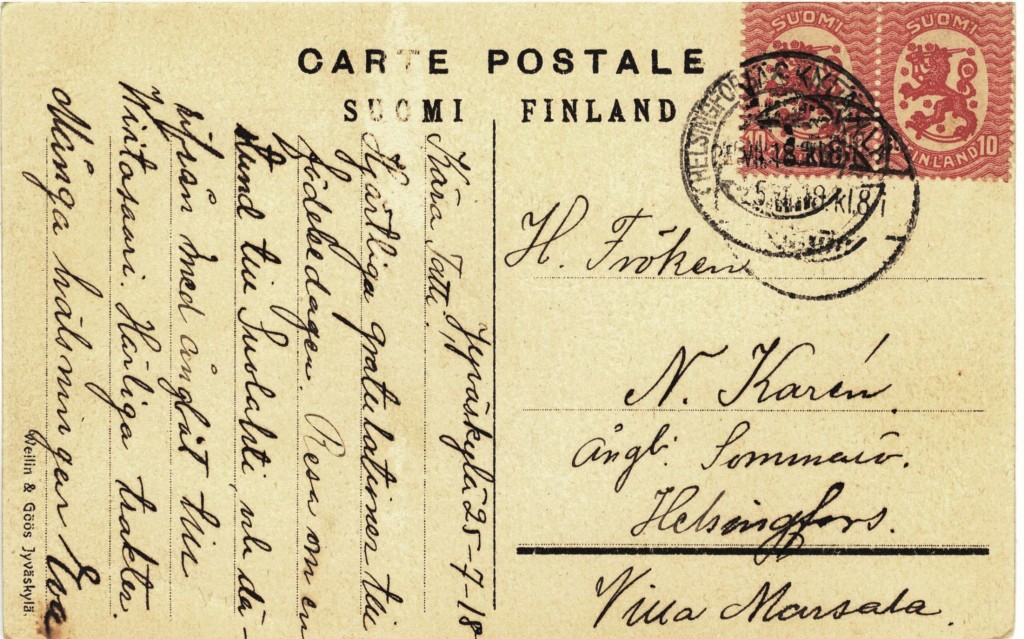 CARTE POSTALE
SUOMI FINLAND
SUOMI
10
SUOMI
FINLAND 10
HELSINGFORS
Jyväskylä 25-7-18
Kära Tatti!
Hjärtliga gratulationer till
födelsedagen. Resa om en
stund till Suolahti, och dä-
rifrån med ångbåt till
Härliga trakter.
Många hälsningar Eva
Weilin & Göös Jyväskylä.
H. Fröken
N. Karén
Ångb. Sommarö.
Helsingfors.
Villa Marsala.